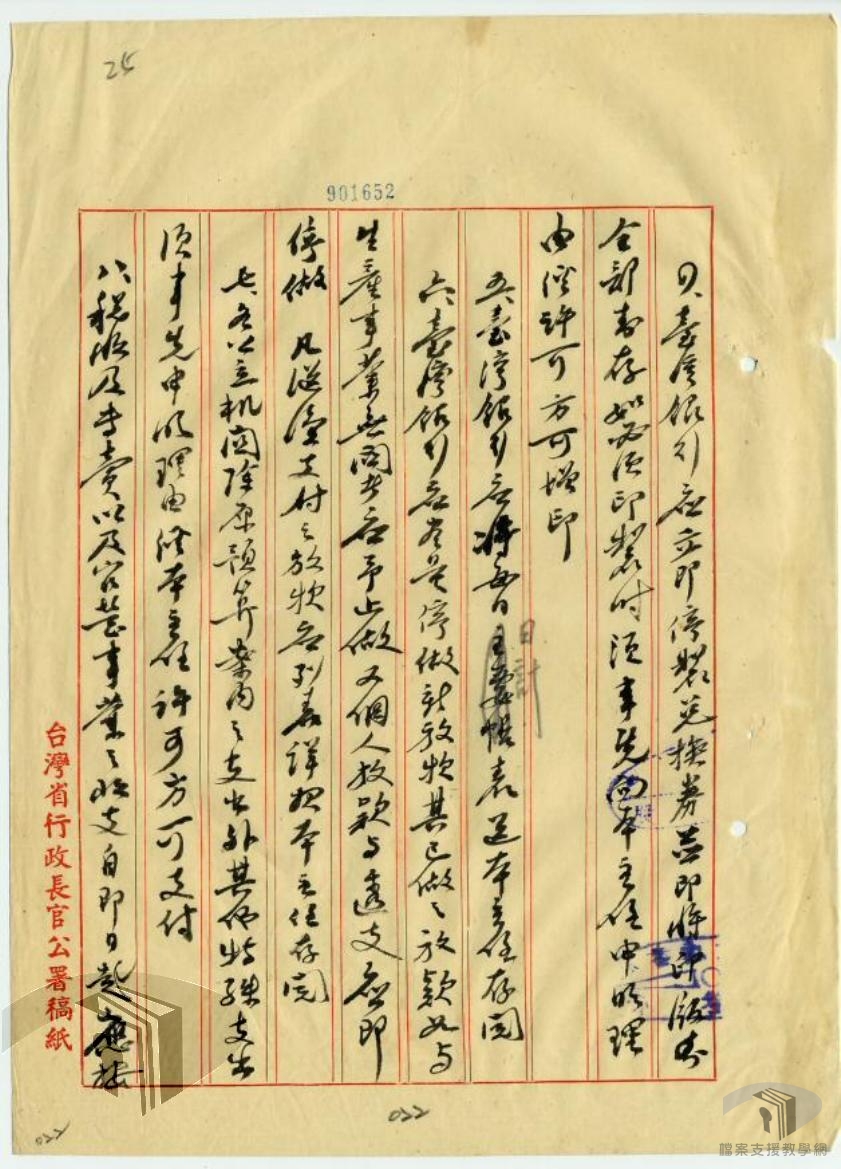 25
901652
四、臺灣銀行應立即停製兌換券並即將印版
全部封存如必須印製時須事先向本主任申明理
由經許可方可增印
五、臺灣銀行應將每日主要帳表送本主任存閱
日計
六、臺灣銀行應盡量停做新放款其已做之放款如與
生產事業無關者應予止做又個人放款与透支應即
停做 凡從優支付之放款應列表詳報本主任存閱
七、各公立机関除原預算案內之支出外其他特殊支出
須事先申明理由經本主任許可方可支付
八、稅收及專賣以及官營事業之收支自即日起應按
台灣省行政長官公署稿紙
022
022
檔案支援教學網